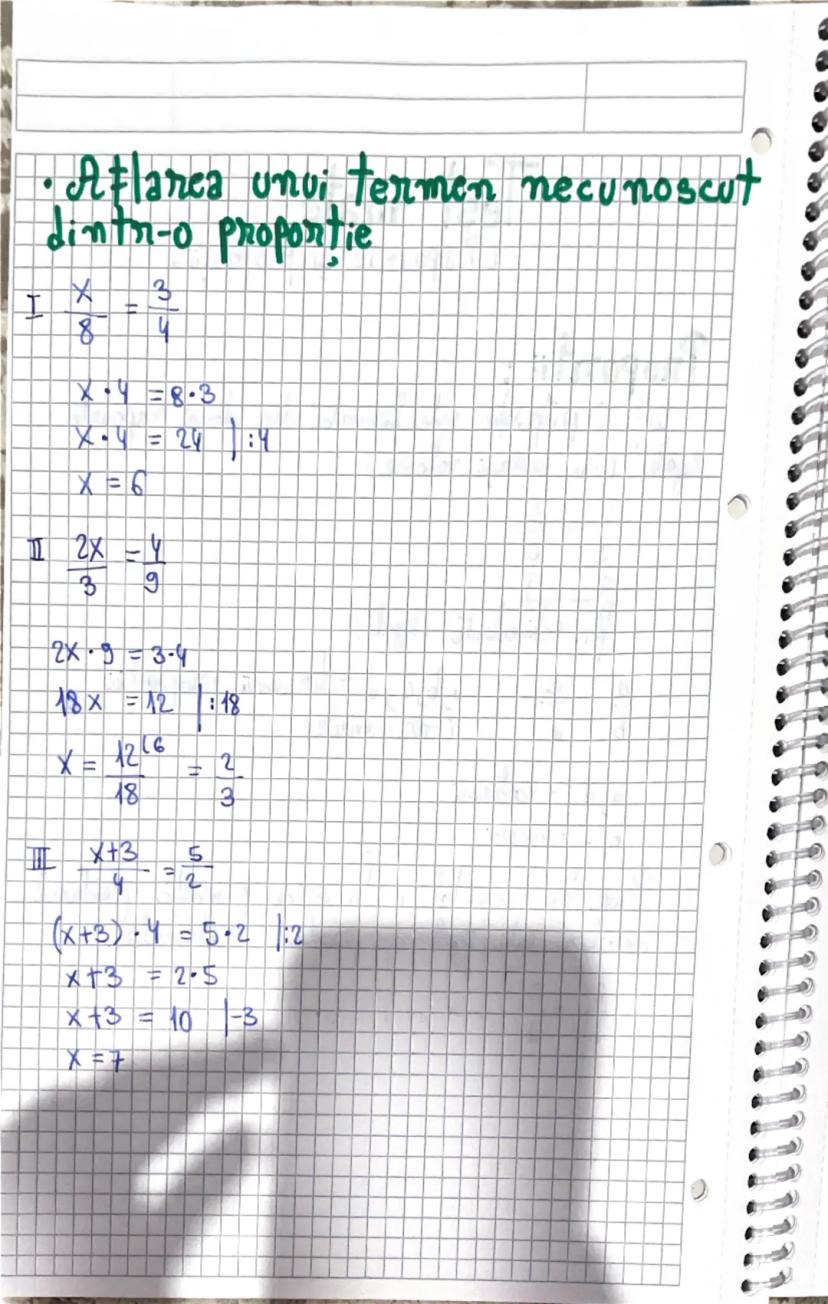 · Aflarea unui termen necunoscut
dintr-o proporție
I x/8 = 3/4
x·4 = 8·3
x·4 = 24 | :4
x = 6
II 2x/3 = 4/9
2x·9 = 3·4
18x = 12 | :18
x = 12(6/18 = 2/3
III x+3/4 = 5/2
(x+3)·4 = 5·2 |:2
x+3 = 2·5
x+3 = 10 |-3
x = 7